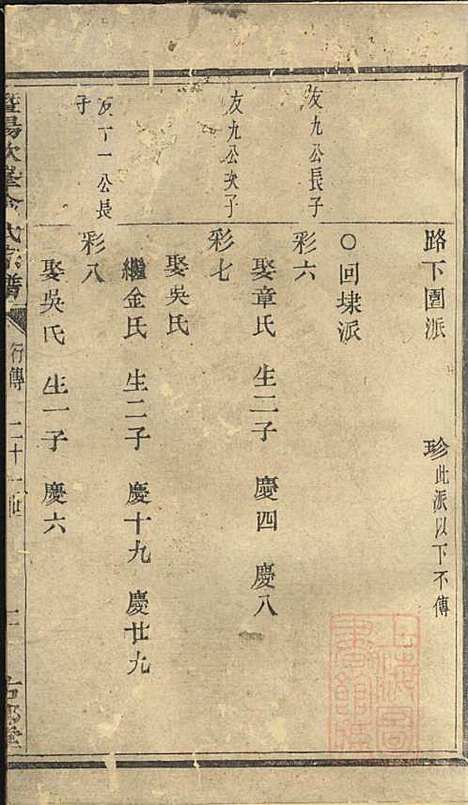 路下園派 珍 此派以下不傳
〇回埭派
友九公長子
彩六
娶章氏 生二子 慶四 慶八
友九公次子
彩七
娶吳氏
繼金氏 生二子 慶十九 慶廿九
友丁一公長子
彩八
娶吳氏 生一子 慶六
暨陽 氏宗譜 行傳 二十一世